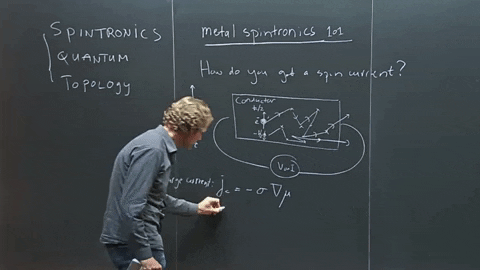 SPINTRONICS
QUANTUM
TOPOLOGY
metal spintronics 101
How do you get a spin current?
Conductor
ħ/2
e
-ħ/2
V or I
current: j_c = -σ∇μ